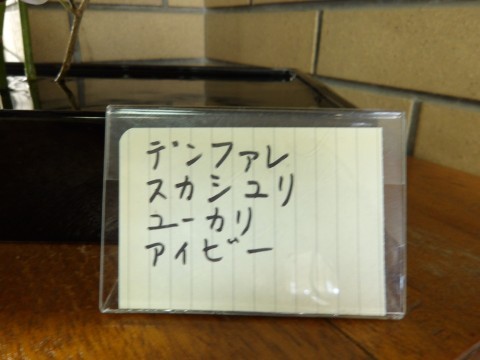 デンファレ
スカシユリ
ユーカリ
アイビー